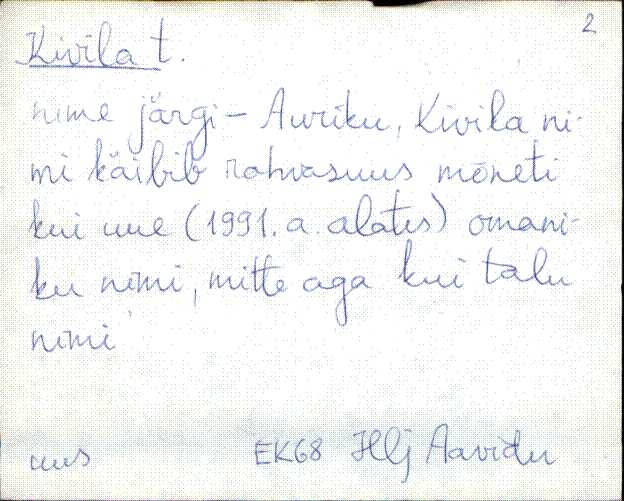 2
Kivila t.
nime järgi - Auriku, Kivila ni-
mi käibib rahvasuus mõneti
kui uue (1991. a. alates) omani-
ku nimi, mitte aga kui talu
nimi
uus EK68 Hlj Aavidu